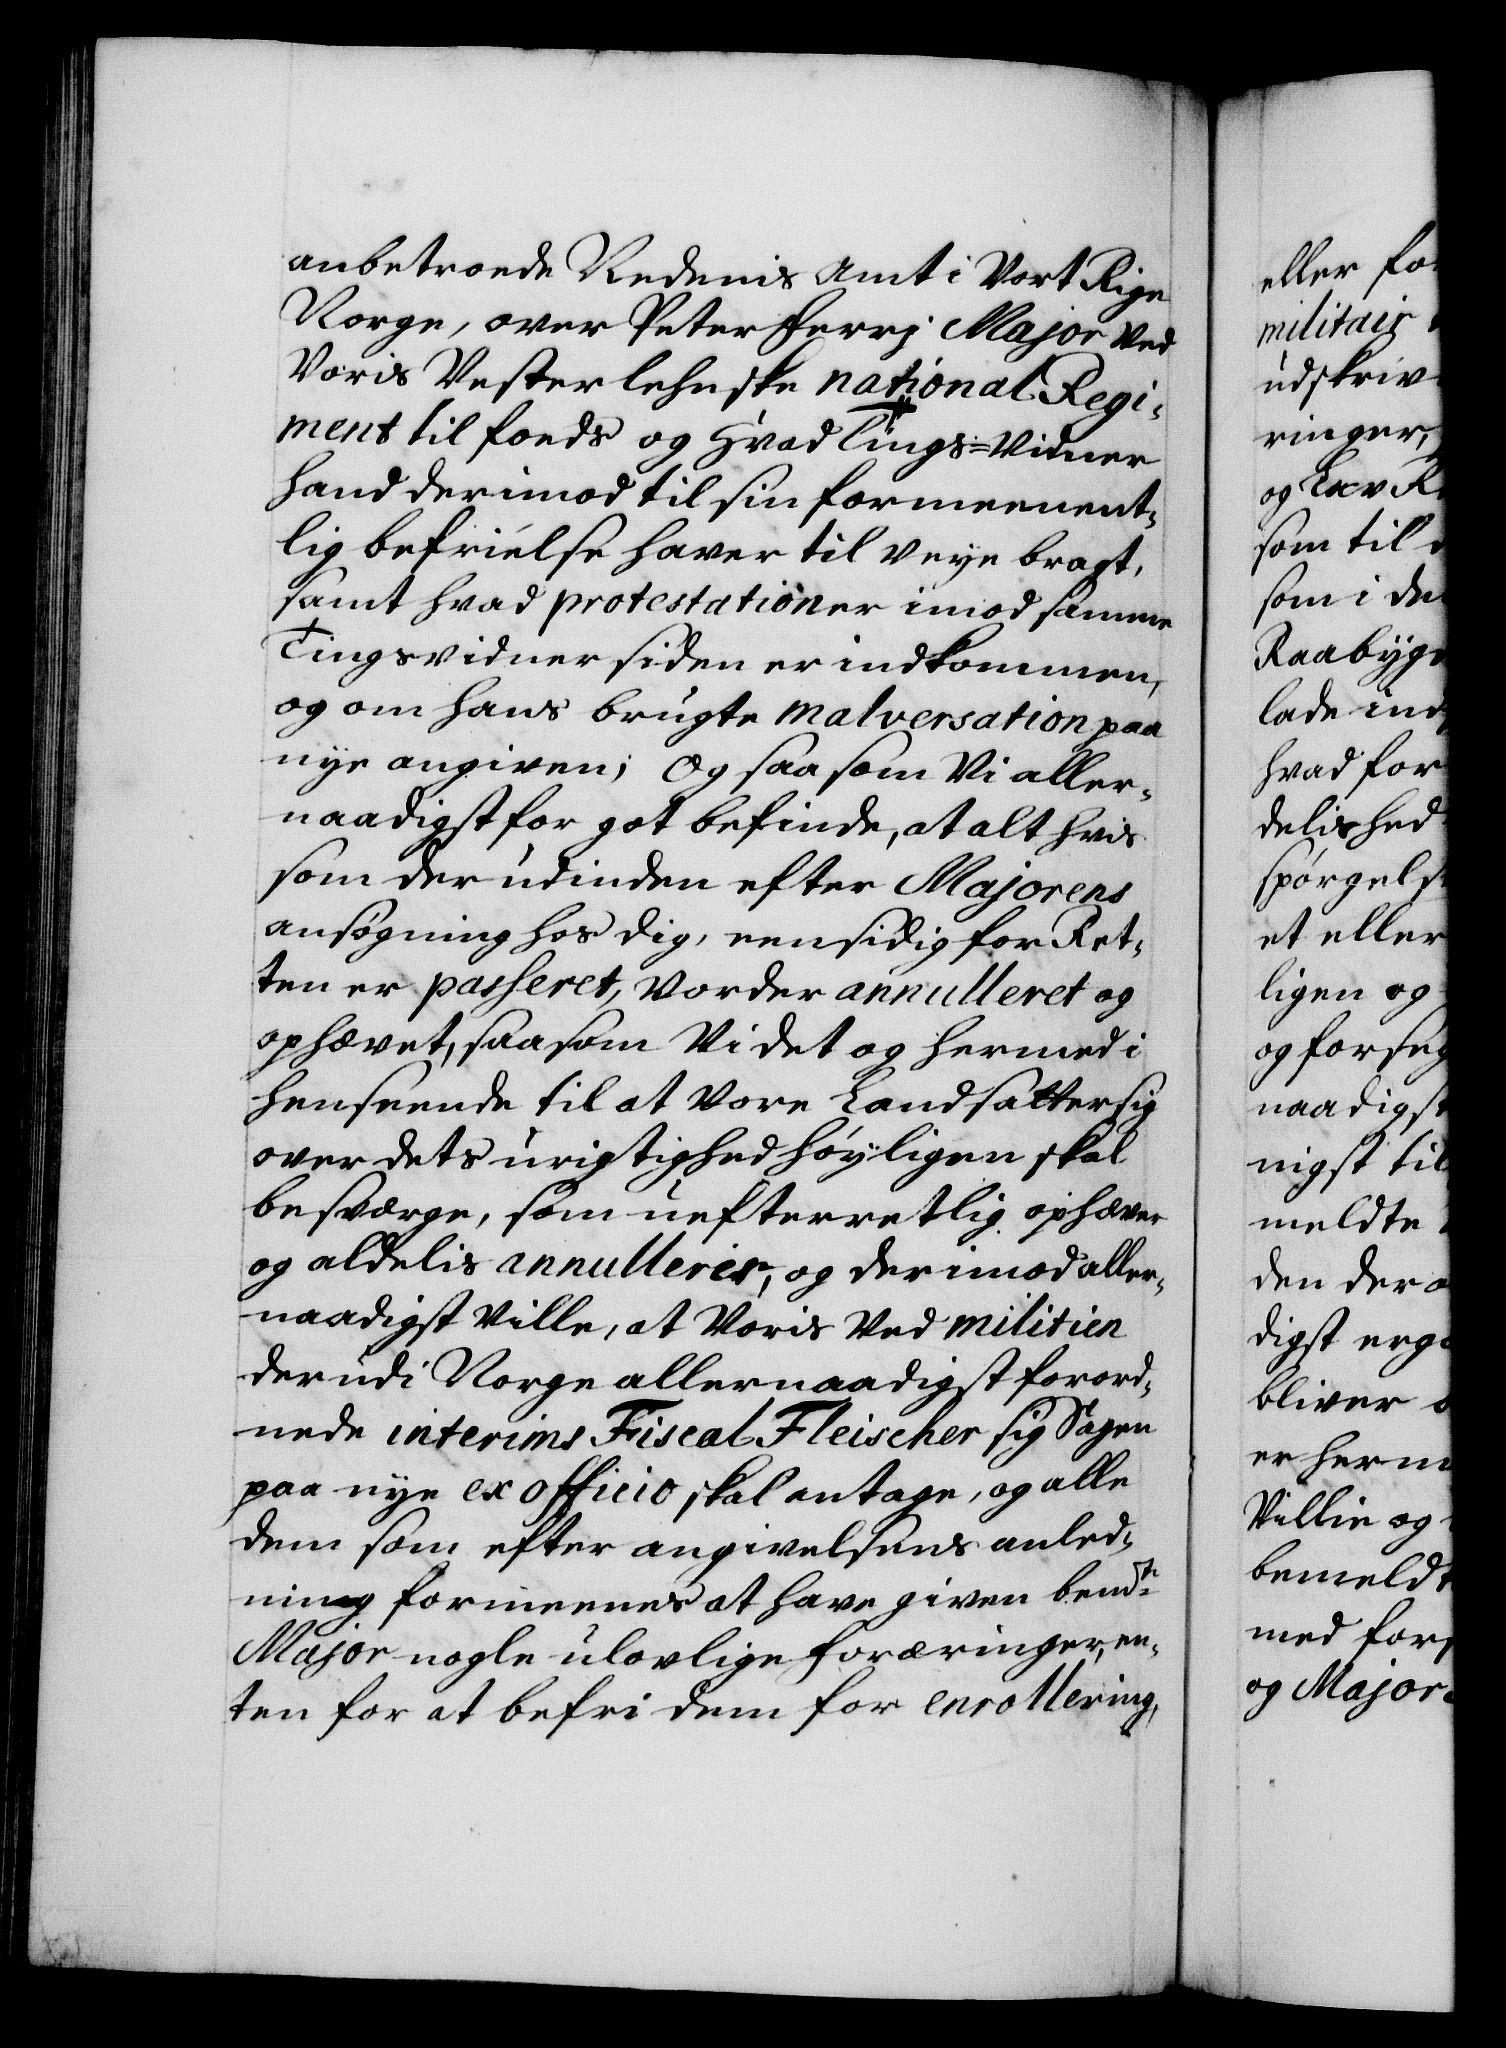 anbetroede Nedenis Amt i Vort Rige
Norge, over Peter Ferrj Major Ved
Voris Vesterlehnske national Regi-
ment til foeds og Hvad Tings-Vidner
hand derimod til sin formeenent-
lig befrielse haver til veye bragt,
samt hvad protestationer imod samme
Tingsvidner siden er indkommen,
og om hans brugte malversation paa
nye angiven; Og saa som Vi aller-
naadigst for got befinde, at alt hvis
som der udinden efter Majorens
ansøgning hos dig, eensidig for Ret-
ten er passeret, vorder annulleret og
ophævet, saasom Vi det og hermed i
henseende til at Vore Landsatter sig
over dets urigtighed høyligen skal
besværge, som uefterretlig ophæver
og aldelis annullerer, og derimod aller-
naadigst Ville, at Voris Ved militien
der udi Norge allernaadigst forord-
nede interims Fiscal Fleischer sig Sagen
paa nye ex officio skal antage, og alle
dem som efter angivelsens anled-
ning formeenes at have given bemdte
Major nogle ulovlige foræringer, en-
ten for at befri dem for enrollering,
eller fo
militair
udskriv
ringer,
og Lav R
som til
som i de
Raabyge
lade ind
hvad for
delished
spørgels
et eller
ligen og
og forseg
naadigst
nigst til
meldte
den der
digst erg
bliver
er herm
Villie og
bemeldt
med fors
og Major